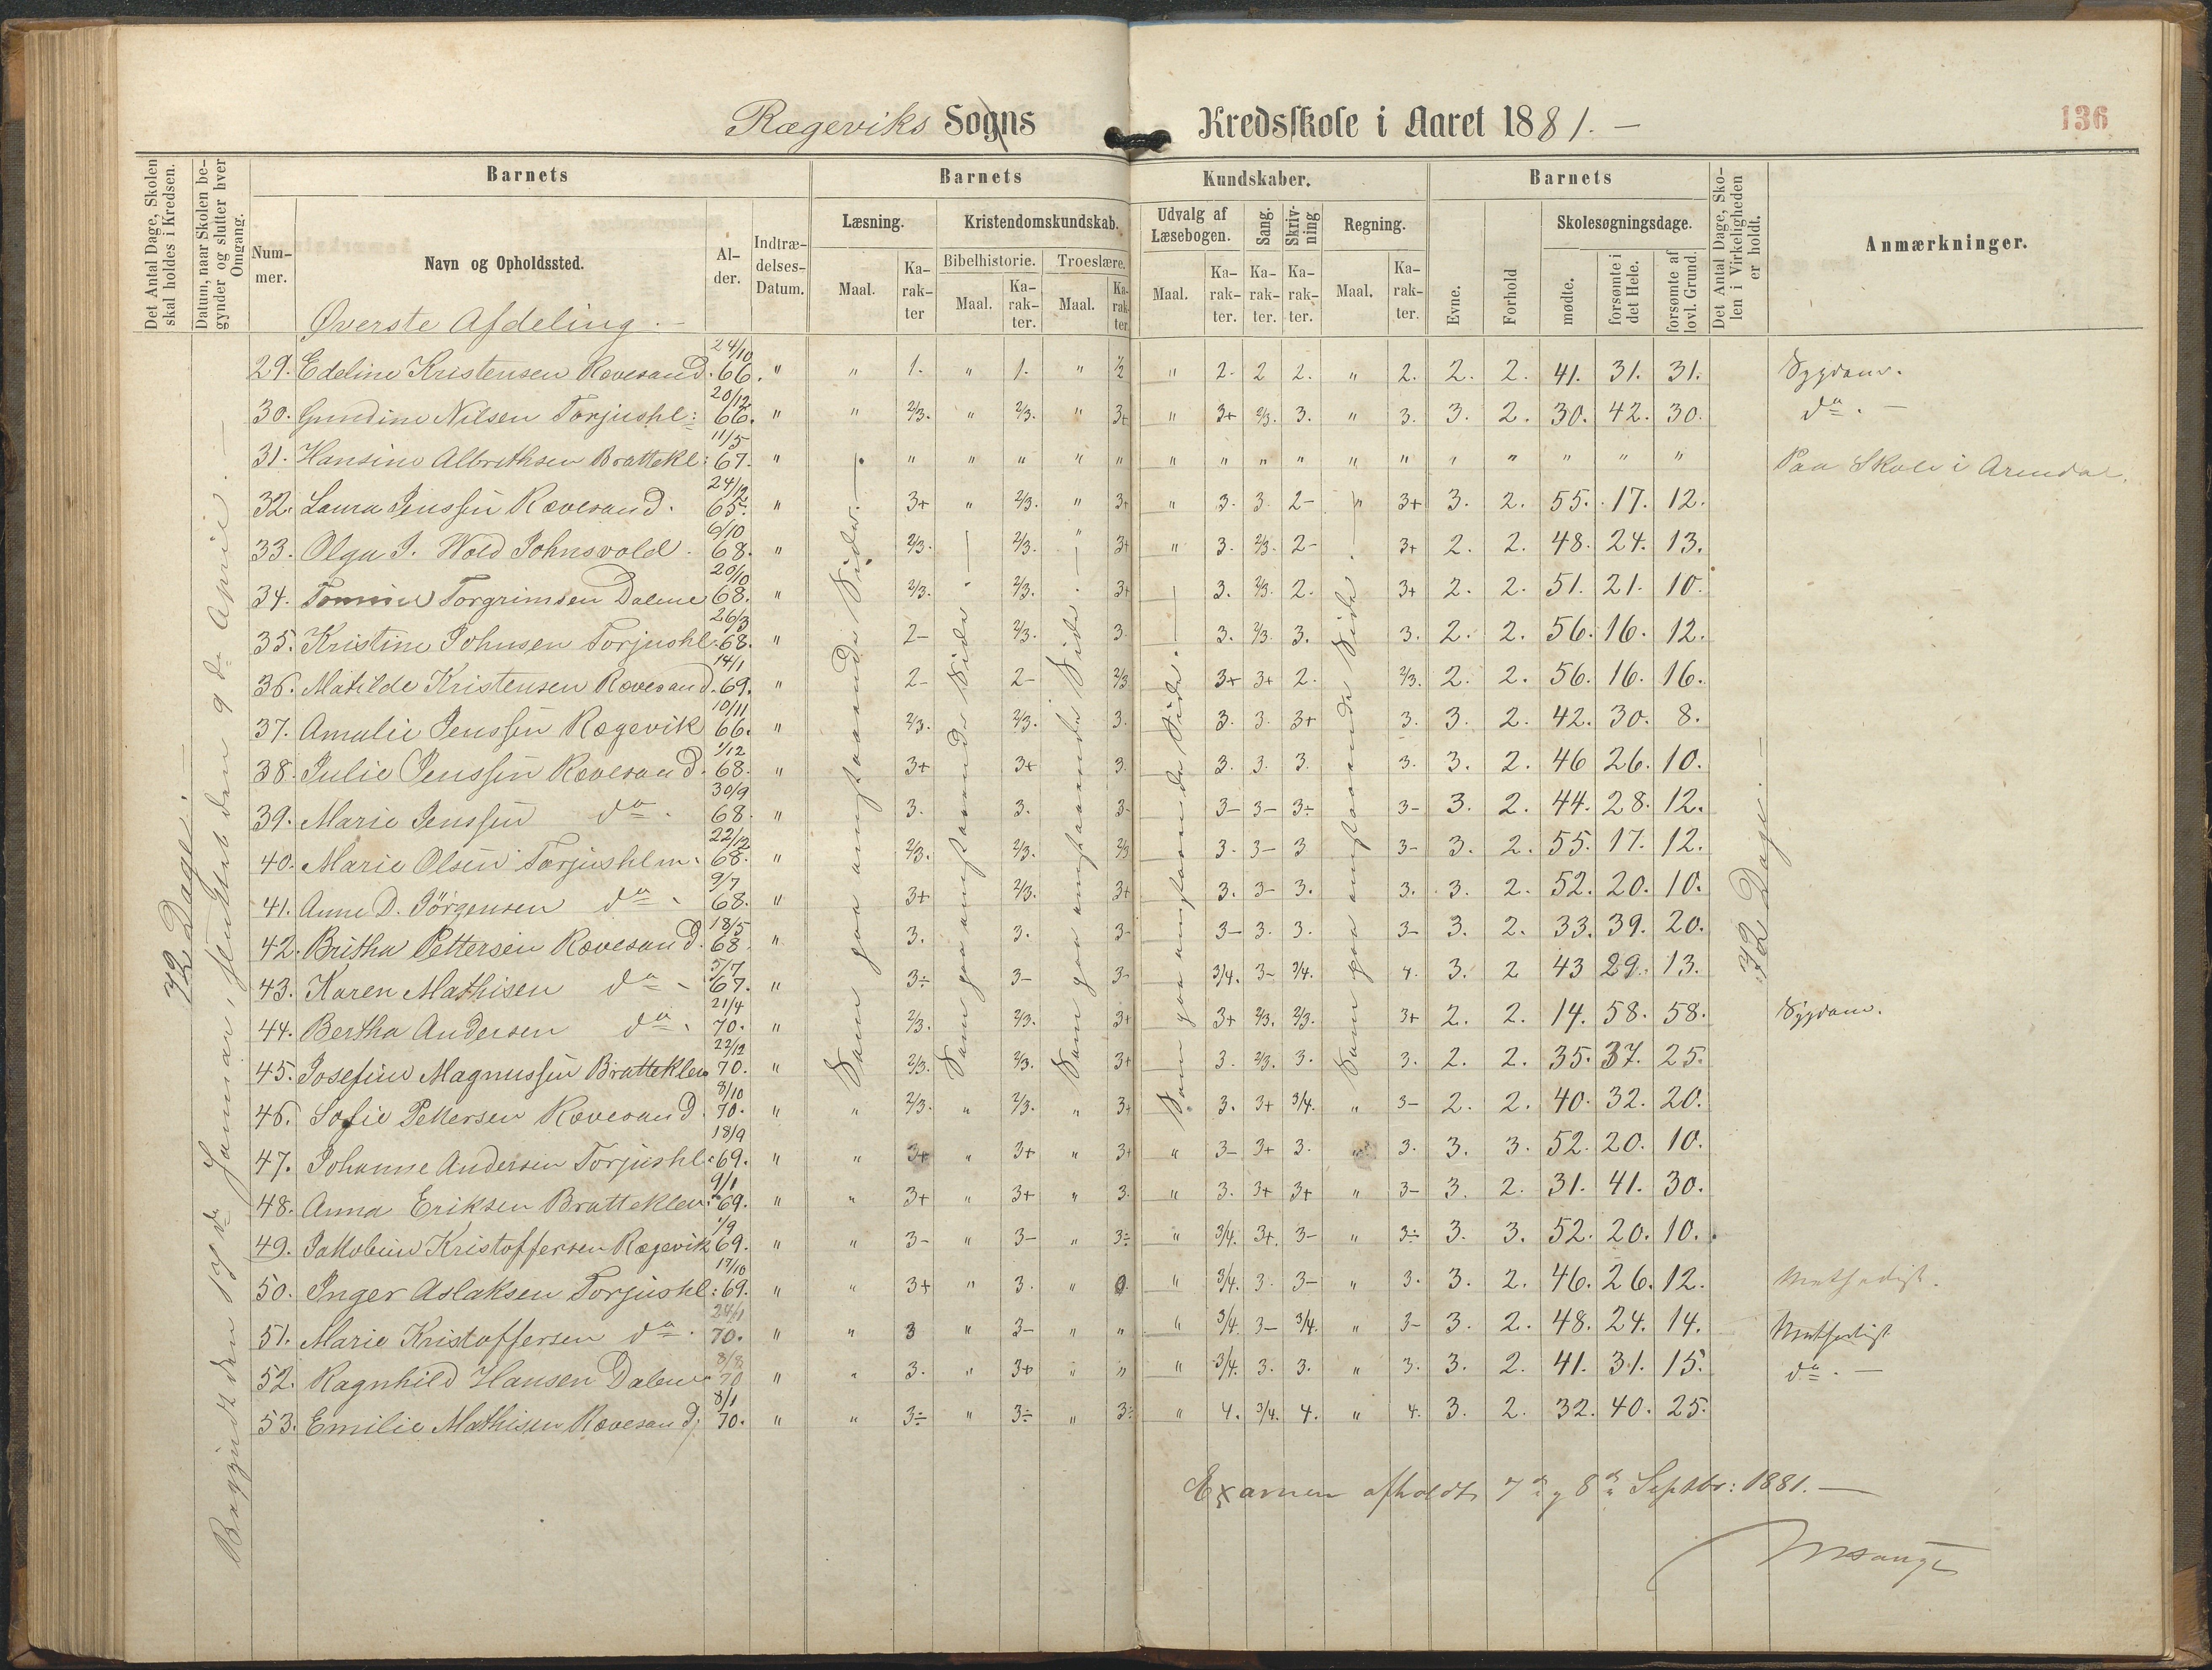 Rægeviks Sogns Kredsskole i Aaret 1881. —
136
Det Antal Dage, Skolen skal holdes i Kredsen.
Datum, naar Skolen begynder og slutter hver Omgang.
Barnets
Barnets Kundskaber.
Barnets
Det Antal Dage, Skolen i Virkeligheden er holdt.
Anmærkninger.
Nummer.
Navn og Opholdssted.
Alder.
Indtrædelses-Datum.
Læsning.
Kristendomskundskab.
Udvalg af Læsebogen.
Sang.
Skrivning
Regning.
Evne.
Forhold
Skolesøgningsdage.
Bibelhistorie.
Troeslære.
Maal.
Karakter
Maal.
Karakter.
Maal.
Karakter.
Maal.
Karakter.
Karakter.
Karakter.
Maal.
Karakter.
mødte.
forsømte i det Hele.
forsømte af lovl. Grund.
Øverste Afdeling. —
29. Edeline Kristensen Rævesand. 24/10 66. " " 1. " 1. " ½ " 2. 2 2. " 2. 2. 2. 41. 31. 31. Sygdom.
30. Gundine Nilsen Torjushl: 20/12 66. " " 2/3. " 2/3. " 3+ " 3+ 2/3. 3. " 3. 3. 2. 30. 42. 30. do. —
31. Hansine Albrethsen Brattekl: 11/5 67. " " " " " " " " " " " " " " " " " Paa Skole i Arendal.
32. Laura Jenssen Rævesand. 24/12 65. " 3+ " 2/3. " 3+ " 3. 3. 2- " 3+ 3. 2. 55. 17. 12.
33. Olga J. Wold Johnsvold. 6/10 68. " 2/3. 2/3. " 3+ " 3. 2/3. 2- 3+ 2. 2. 48. 24. 13.
34. Torgrimsen Dalene 20/10 68. " 2/3. 2/3. 3+ 3. 2/3. 2. 3+ 2. 2. 51. 21. 10.
35. Kristine Johnsen Torjushl. 26/3 68. " 2- 2/3. 3. 3. 2/3. 3. 3. 2. 2. 56. 16. 12.
36. Matilde Kristensen Rævesand. 14/1 69. " 2- 2- 2/3 3+ 3+ 2. 2/3. 2. 2. 56. 16. 16.
37. Amalie Jenssen Rægevik 10/11 66. " 2/3. 2/3. 3. 3. 3. 3+ 3. 3. 2. 42. 30. 8.
38. Julie Jenssen Rævesand. 1/12 68. " 3+ 3+ 3. 3. 3. 3. 3. 3. 2. 46 26. 10.
39. Marie Jenssen do. 30/9 68. " 3. 3. 3- 3- 3- 3÷ 3- 3. 2. 44. 28. 12.
40. Marie Olsen Torjushlm. 22/12 68. " 2/3. 2/3. 2/3 3. 3- 3 3- 3. 2. 55. 17. 12.
41. Anne D. Jörgensen do. 9/7 68. " 3+ 2/3. 3+ 3. 3- 3. 3. 3. 2. 52. 20. 10.
42. Britha Pettersen Rævesand. 18/5 68 " 3. 3. 3- 3- 3. 3. 3- 3. 2. 33. 39. 20.
43. Karen Mathisen do - 5/7 67. " 3÷ 3- 3- 3/4. 3- 3/4. 4. 3. 2 43 29. 13.
44. Bertha Andersen do. 21/4 70. " 2/3. 2/3. 3+ 3+ 2/3. 2/3. 3+ 2. 2. 14. 58. 58. Sygdom.
45. Josefine Magnussen Brattekleo 22/12 70. " 2/3. 2/3. 3+ 3. 2/3. 3. 3. 2. 2. 35. 37. 25.
46. Sofie Pettersen Rævesand. 8/10 70. " " 2/3. " 2/3. " 3+ 3. 3+ 3/4. " 3- 2. 2. 40. 32. 20.
47. Johanne Andersen Torjushl: 18/9 69. " " 3+ " 3+ " 3+ " 3- 3+ 3. " 3. 3. 3. 52. 20. 10.
48. Anna Eriksen Bratteklev: 9/1 69. " " 3+ " 3+ " 3. " 3. 3+ 3+ " 3- 3. 2. 31. 41. 30.
49. Jakobine Kristoffersen Rægevik 1/9 69. " " 3- " 3- " 3÷ " 3/4. 3+. 3- " 3÷ 3. 3. 52. 20. 10.
50. Inger Aslaksen Torjushl: 17/10 69. " " 3+ " 3. " 0. " 3/4. 3. 3- " 3. 3. 2. 46. 26. 12. Methodist.
51. Marie Kristoffersen do. 24/1 70. " " 3 " 3- " " " 3/4. 3- 3/4. " 3- 3. 2. 48. 24. 14. Methodist
52. Ragnhild Hansen Dalene 8/8 70 " " 3. " 3+ " " " 3/4. 3. 3. " 3. 3. 2. 41. 31. 15. do. —
53. Emilie Mathisen Rævesand, 8/1 70. " " 3÷ " 3÷ " 3÷ " 4. 3/4. 4. " 4. 3. 2. 32. 40. 25.
72 Dage. —
Begyndt den 19de Januar, sluttet den 9de April. —
Som paa omstaaende Side. —
Som paa omstaaende Side. —
Som paa omstaaende Side. —
Som paa omstaaende Side. —
Som paa omstaaende Side.
72 Dage. —
Examen afholdt 7de og 8de Septbr: 1881. —